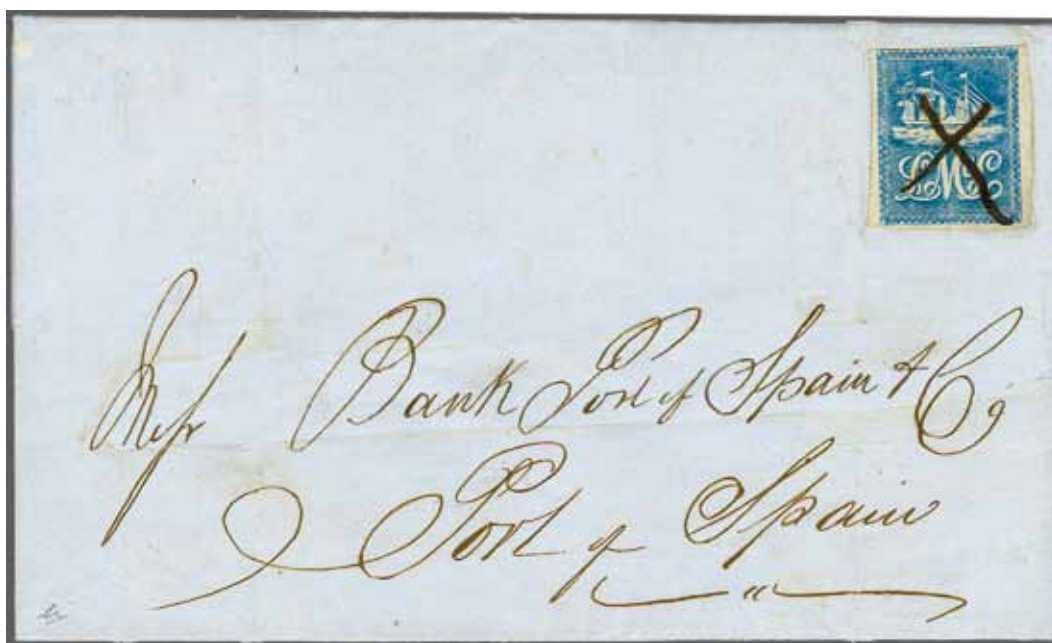 LMcL
Messr Bank Port of Spain & Co
Port of Spain